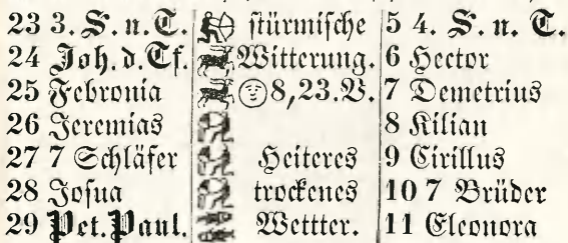 23 3. S. n. T. stürmische 5 4. S. n. T.
24 Joh. d. Tf. Witterung. 6 Hector
25 Febronia 8,23. V. 7 Demetrius
26 Jeremias 8 Kilian
27 7 Schläfer Heiteres 9 Cirillus
28 Josua trockenes 10 7 Brüder
29 Pet. Paul. Wettter. 11 Eleonora